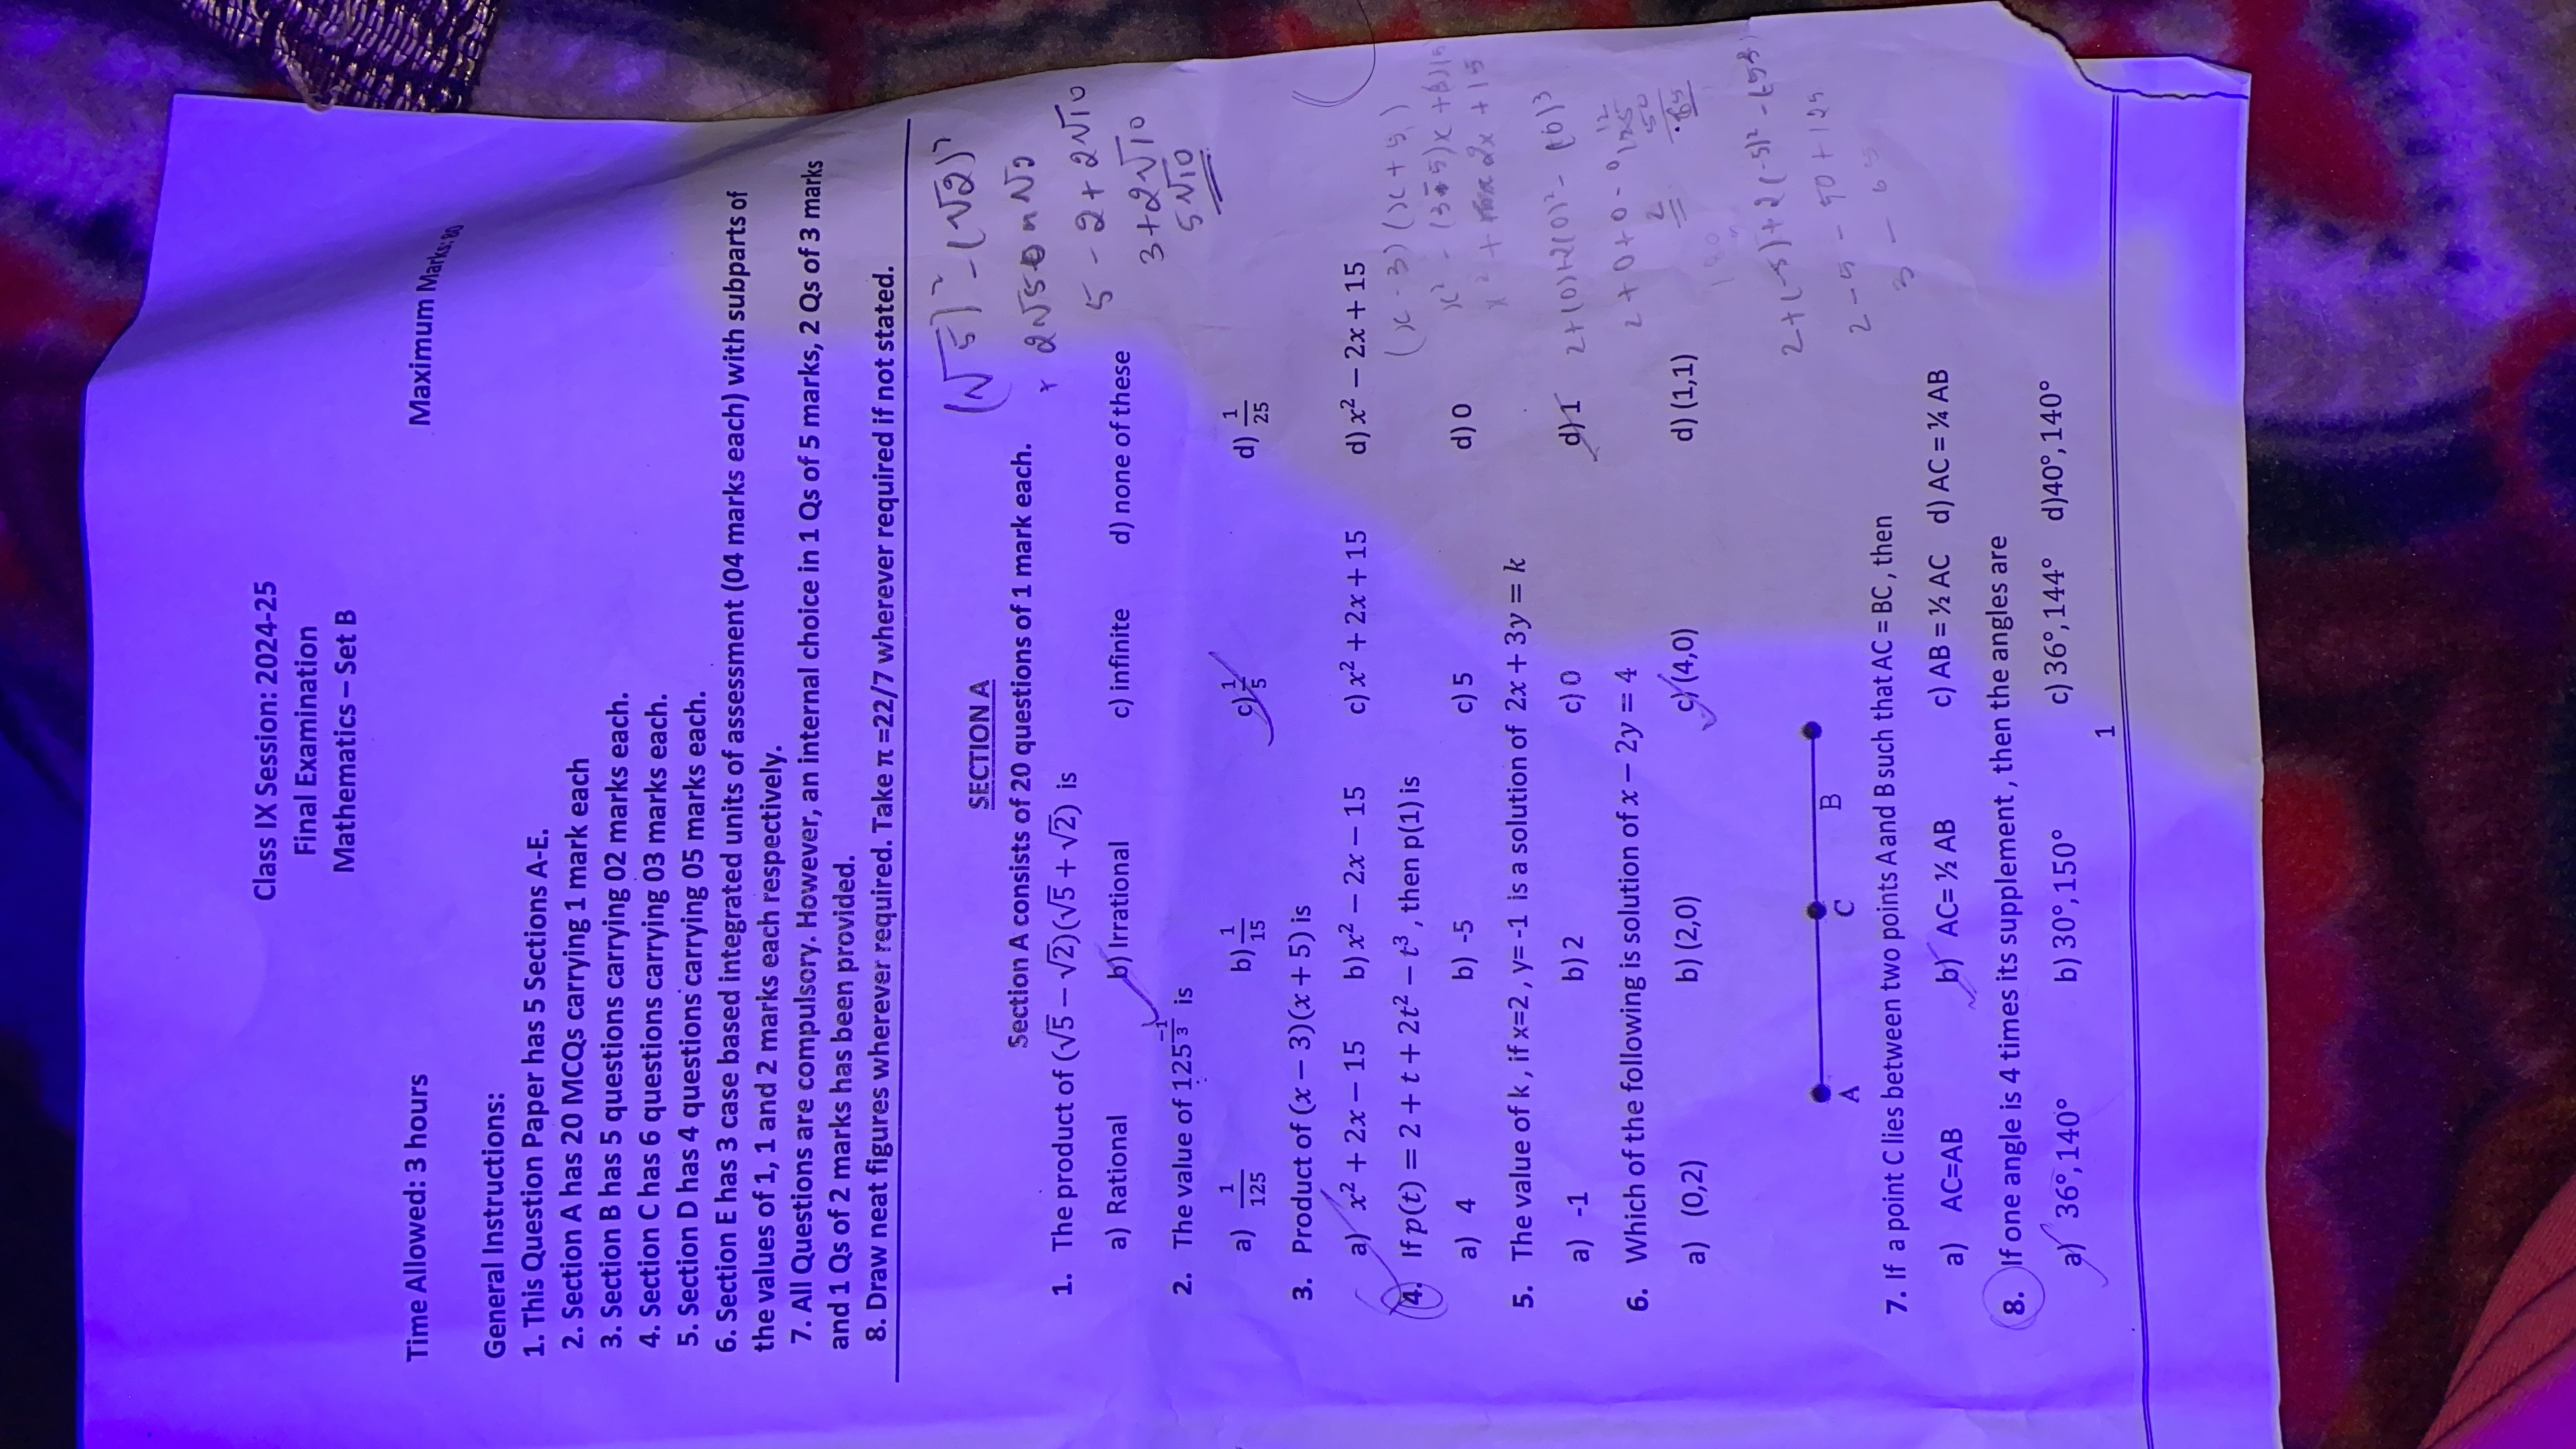 Class IX Session: 2024-25
Final Examination
Mathematics – Set B
Time Allowed: 3 hours Maximum Marks: 80
General Instructions:
1. This Question Paper has 5 Sections A-E.
2. Section A has 20 MCQs carrying 1 mark each
3. Section B has 5 questions carrying 02 marks each.
4. Section C has 6 questions carrying 03 marks each.
5. Section D has 4 questions carrying 05 marks each.
6. Section E has 3 case based integrated units of assessment (04 marks each) with subparts of
the values of 1, 1 and 2 marks each respectively.
7. All Questions are compulsory. However, an internal choice in 1 Qs of 5 marks, 2 Qs of 3 marks
and 1 Qs of 2 marks has been provided.
8. Draw neat figures wherever required. Take π =22/7 wherever required if not stated.
SECTION A
Section A consists of 20 questions of 1 mark each.
(√5)² - (√2)²
1. The product of (√5 − √2)(√5 + √2) is
a) Rational b) Irrational c) infinite d) none of these
5 - 2 + 2√10
3 + 2√10
5√10
2. The value of 125^(-1/3) is
a) 1/125 b) 1/15 c) 1/5 d) 1/25
3. Product of (x − 3)(x + 5) is
a) x² + 2x − 15 b) x² − 2x − 15 c) x² + 2x + 15 d) x² − 2x + 15
(x - 3)(x + 5)
4. If p(t) = 2 + t + 2t² − t³ , then p(1) is
a) 4 b) -5 c) 5 d) 0
5. The value of k , if x=2 , y= -1 is a solution of 2x + 3y = k
a) -1 b) 2 c) 0 d) 1
2+(0)+2(0)² - (0)³
2 + 0 + 0 - 0
2
6. Which of the following is solution of x − 2y = 4
a) (0,2) b) (2,0) c) (4,0) d) (1,1)
2+(-5)+2(-5)² - (-5)³
2 - 5 - 50 + 125
A C B
7. If a point C lies between two points A and B such that AC = BC , then
a) AC=AB b) AC= ½ AB c) AB = ½ AC d) AC = ¼ AB
8. If one angle is 4 times its supplement , then the angles are
a) 36°, 140° b) 30°, 150° c) 36°, 144° d)40°, 140°
1